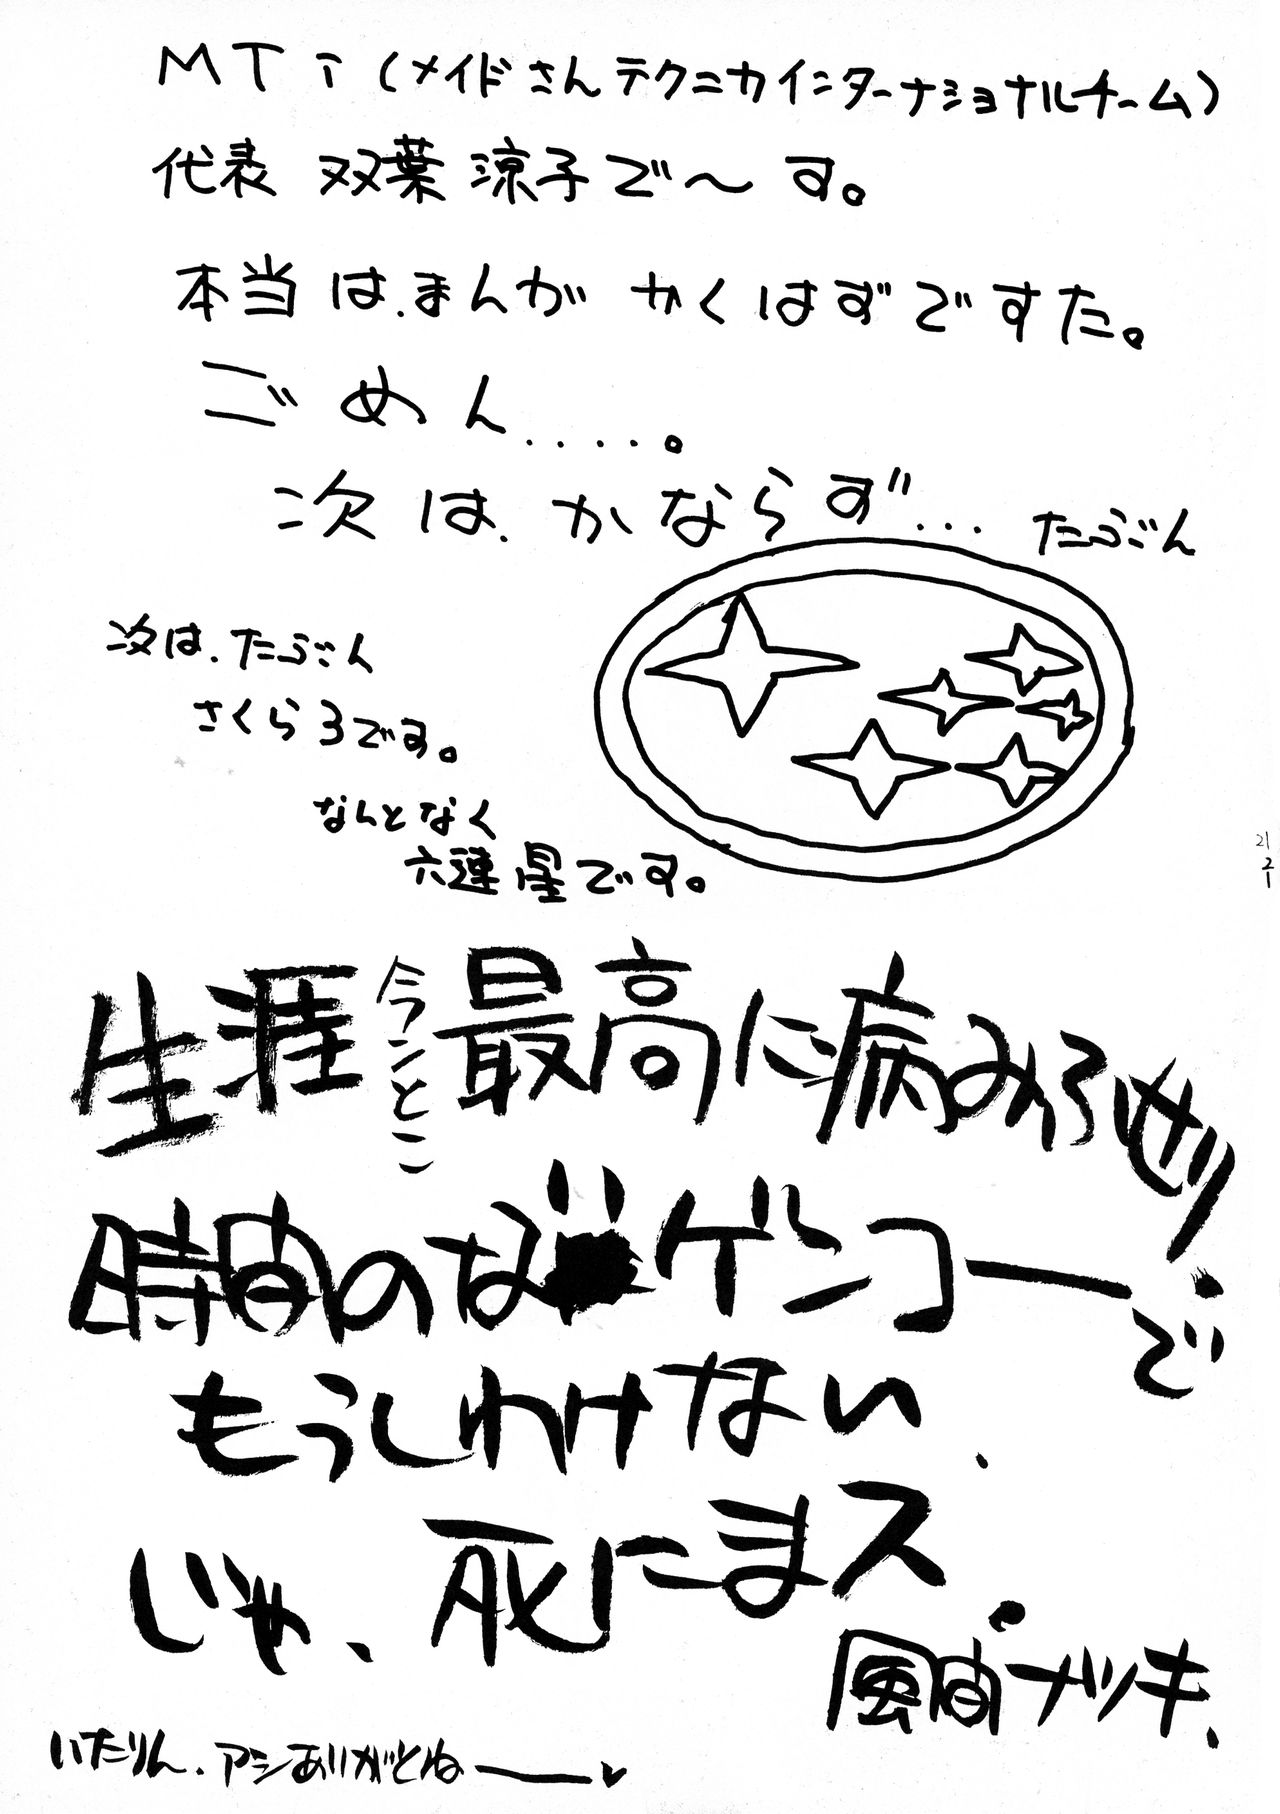 MTi(メイドさんテクニカインターナショナルチーム)
代表 双葉涼子で〜す。
本当は、まんが かくはずですた。
ごめん.....。
次は、かならず... たぶん
次は、たぶん
さくら3です。
なんとなく
六連星です。
生涯今んとこ最高に病みろぜ!
時間のな ゲンコーで
もうしわけない、
じゃ、死にまス。
風間ナツキ、
いたりん、アシありがとねー